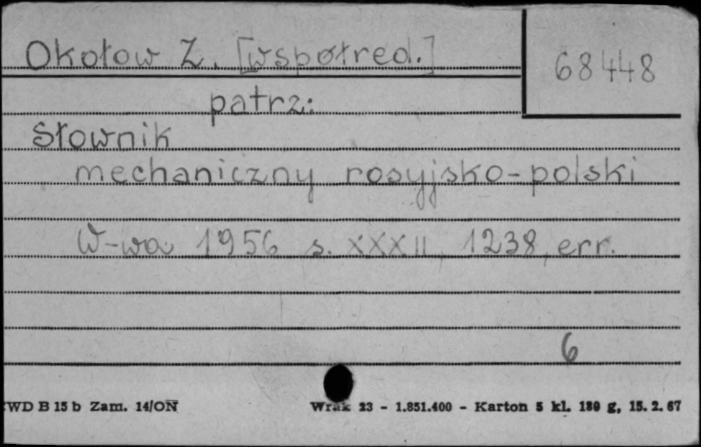 Okołow Z. [współred.]
68448
patrz:
Słownik
mechaniczny rosyjsko-polski
W-wa 1956 s. XXXII, 1238, err.
6
CWD B 15 b Zam. 14/ON Wrak 23 - 1.851.400 - Karton 5 kl. 180 g, 15. 2. 67